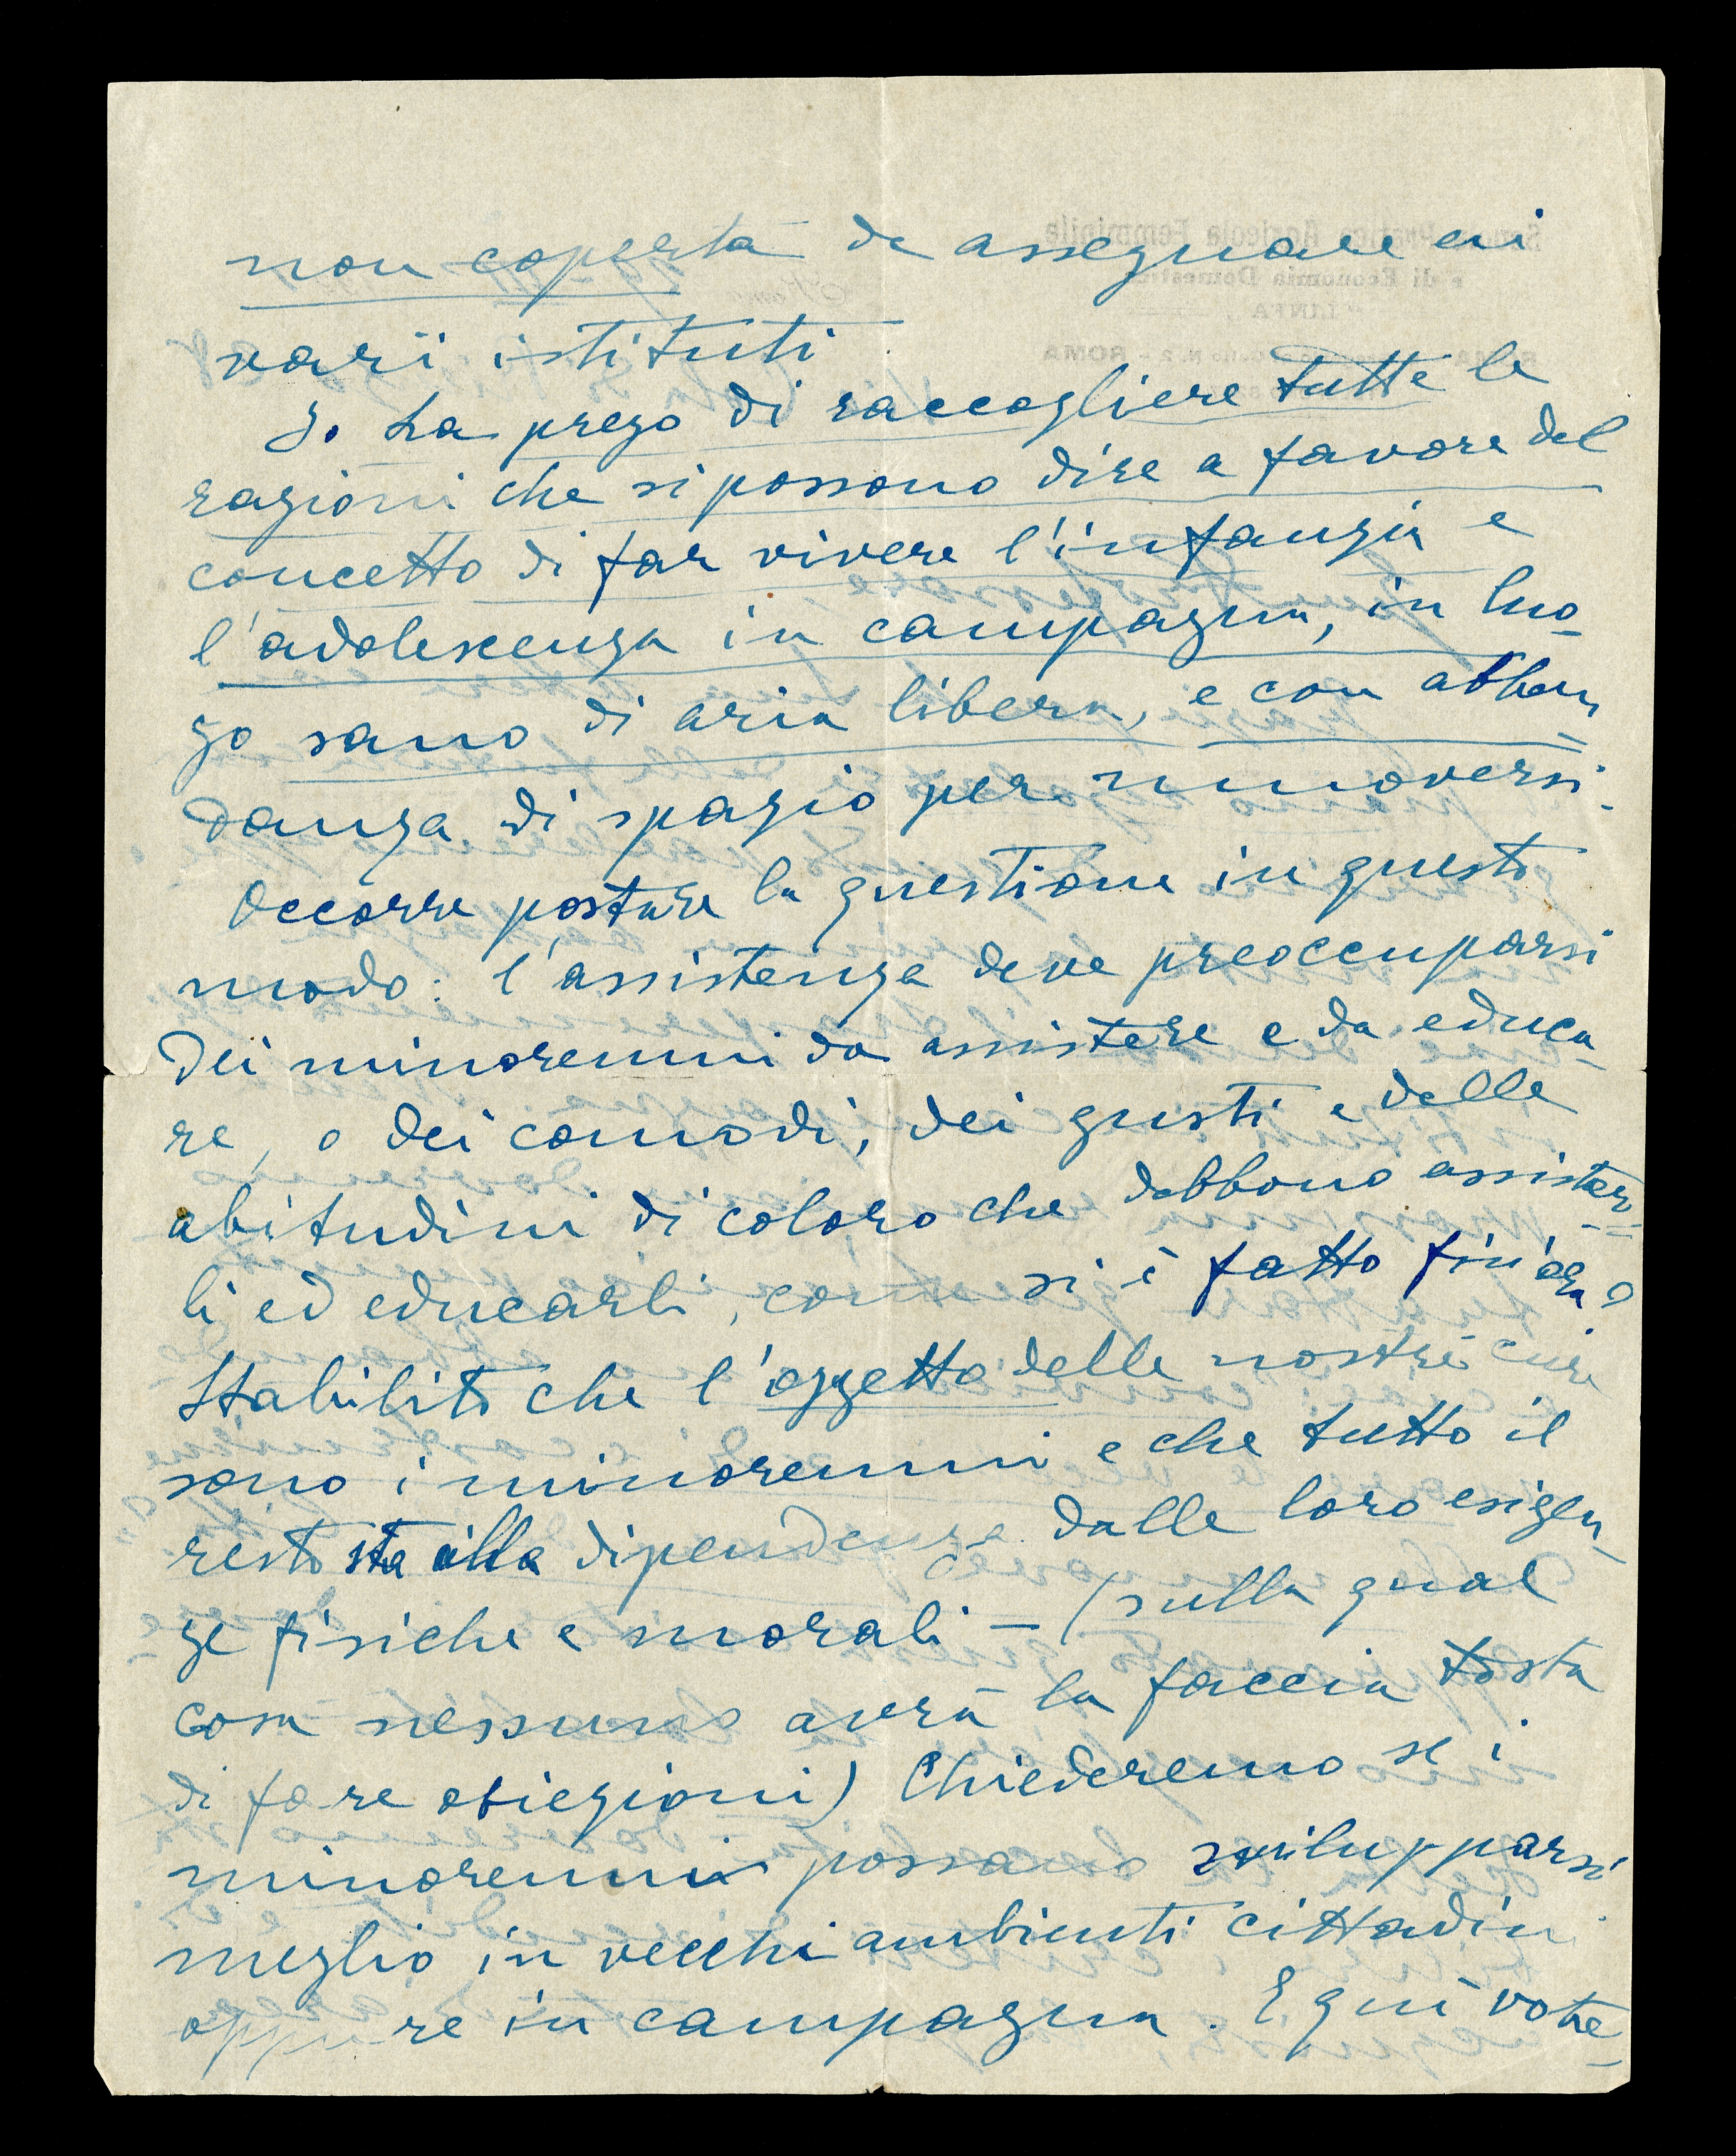 non coperta da assegnare ai
varii istituti
Io La prego di raccogliere tutte le
ragioni che si possono dire a favore del
concetto di far vivere l'infanzia e
l'adolescenza in campagna, in luo-
go sano di aria libera, e con abbon-
danza di spazio per muoversi.
Occorre postare la questione in questo
modo: l'assistenza deve preoccuparsi
dei minorenni da assistere e da educa-
re, o dei comodi, dei gusti e delle
abitudini di coloro che debbono assister-
li ed educarli, come si è fatto fin'ora?
Stabilito che l'oggetto delle nostre cure
sono i minorenni e che tutto il
resto sta alla dipendenza dalle loro esigen-
ze fisiche e morali - (sulla qual
cosa nessuno avrà la faccia tosta
di fare obiezioni) Chiederemo se i
minorenni possano svilupparsi
meglio in vecchi ambienti cittadini
oppure in campagna. E qui votre-